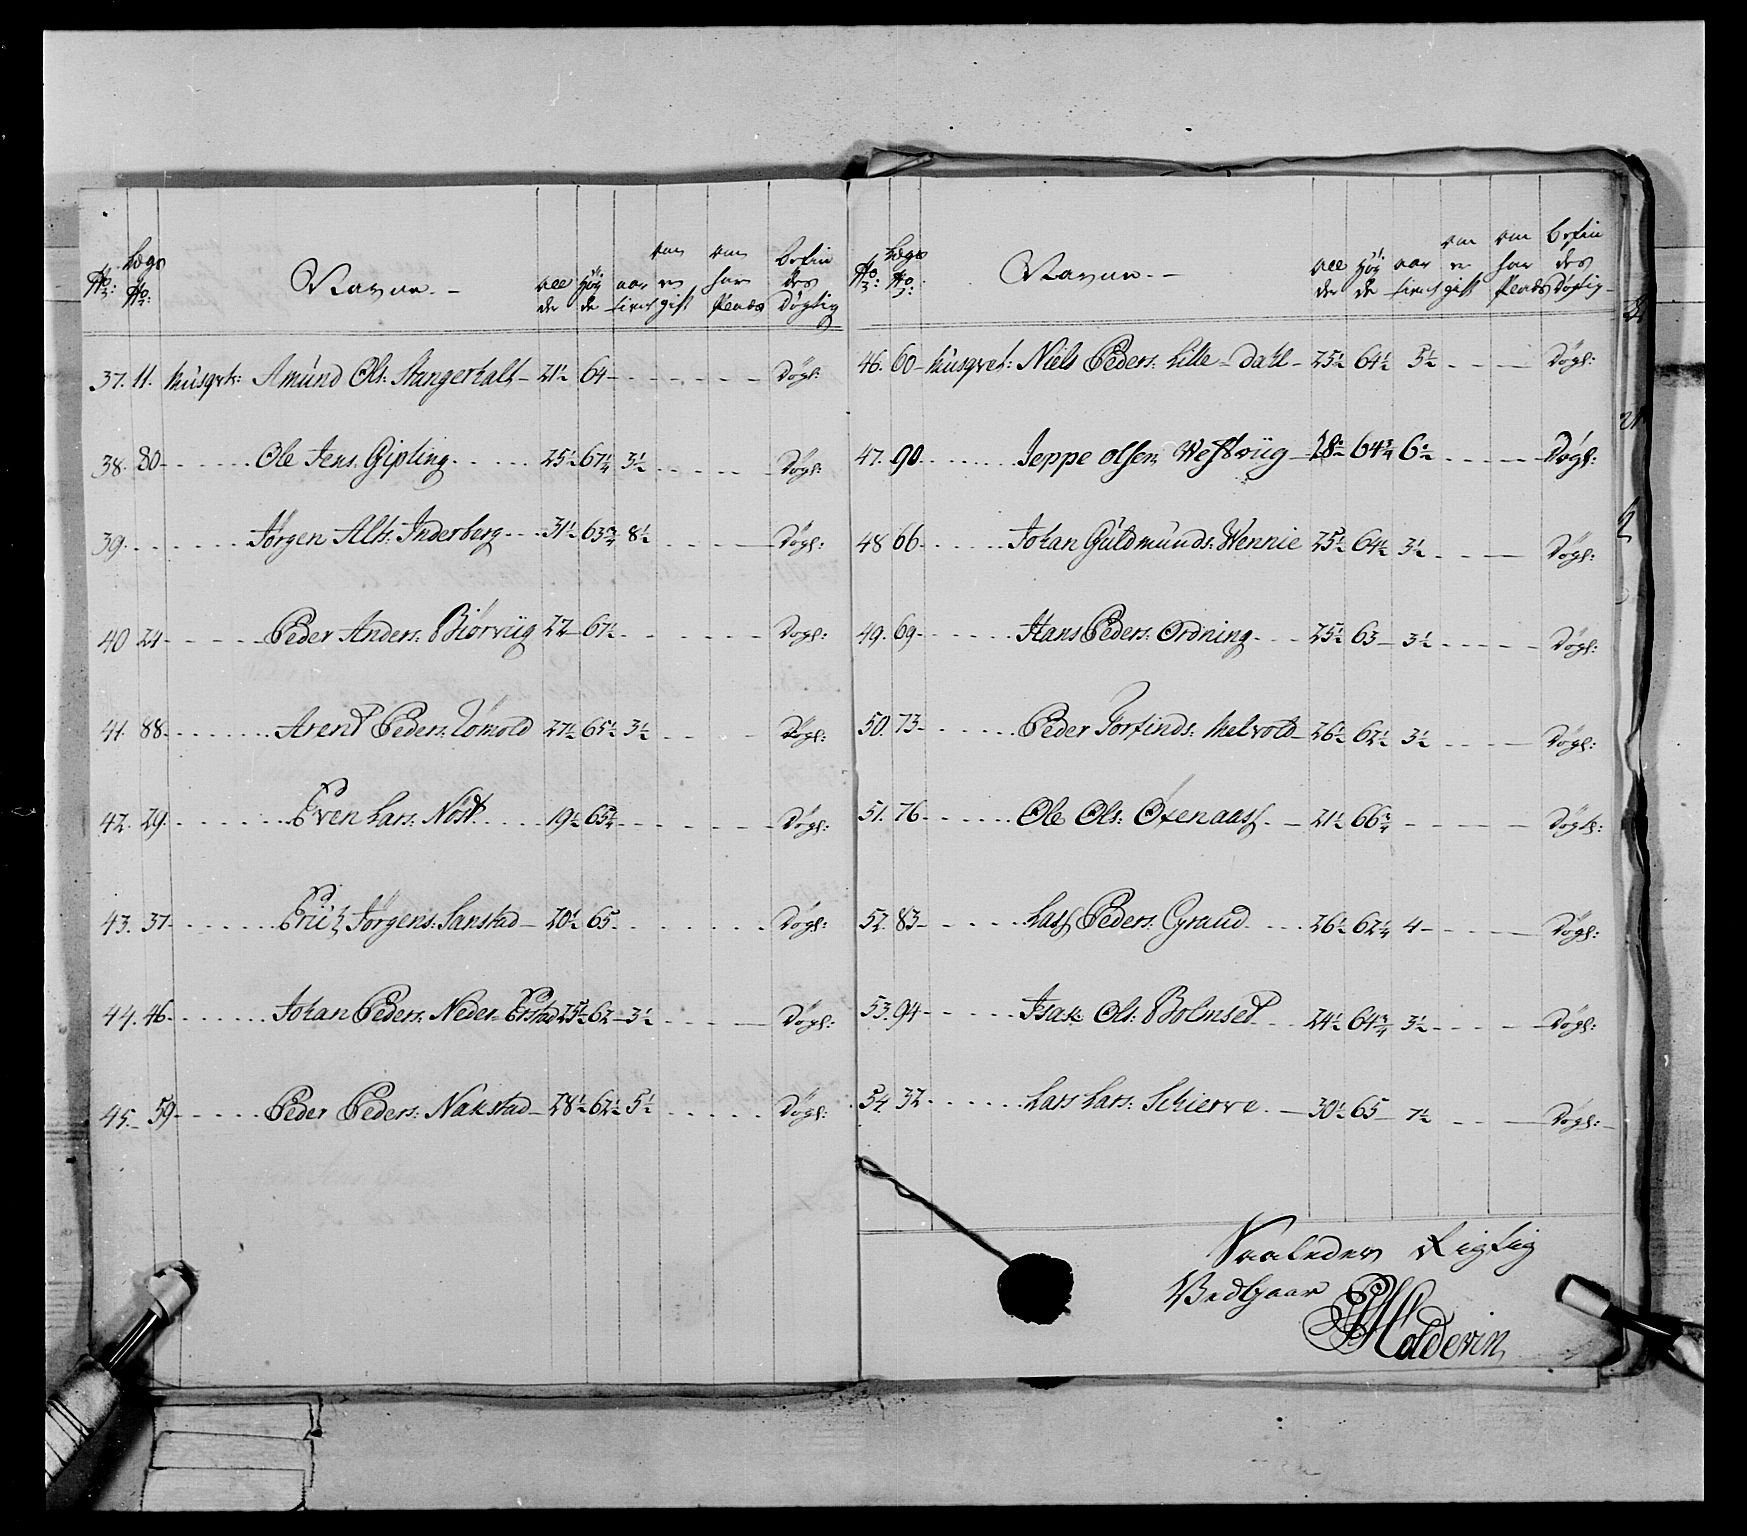 No: Lægs No: Navne. - alder Høyde aar tient om er gift om har Plads befindes Døgtig
37. 11. Musqvt: Amund Ols: Stangerhalt - 21½ 64 - Døgl:
38. 80 Ole Jens. Gipling 25½ 67¼ 3½ Døgl:
39. Jørgen Alb: Inderberg 31½ 63¾ 8½ Døgl:
40 24 Peder Anders: Biørviig 22 - 67½ Døgl:
41. 88. Arent Peders: Tømold 27½ 65½ 3½ Døgl:
42. 29. Even Lars: Nøst 19½ 65¼ Døgl:
43. 37 Erich Jørgens: Sanstad - 20½ 65. Døgl:
44. 46. Johan Peders: Neder Erstad 25½ 62 - 3½ Døgl:
45. 59 Peder Peders: Nakstad - 28½ 62½ 5½ Døgl:
No: Lægs No: Navne. - alder Høyde aar tient om er gift om har Plads befindes Døgtig
46. 60 - Musqvet: Niels Peders: Lille - Dahl - 25½ 64½ 5½ Døgl:
47. 90. Jeppe Olsen Westviig 28½ 64¾ 6½ Døgl:
48 66 Johan Guldmunds: Wennie 25½ 64½ 3½ Døgl:
49. 69 Hans Peders: Ordning 25½ 63 - 3½ Døgl:
50. 73 Peder Torfinds: Melvold 26½ 62½ 3½ Døgl:
51. 76 Ole Ols: Oxenaass 21½ 66¾ Døgl:
52. 83 Lass Peders: Graud 26½ 62¼ 4 - Døgl:
53. 94 Isak Ols: Bolmset 24½ 64¾ 3½ Døgl:
54 32 Lars Lars: Schierve. 30½ 65 7½ Døgl:
Saaledes Rigtig
Vedgaar
Holdevin